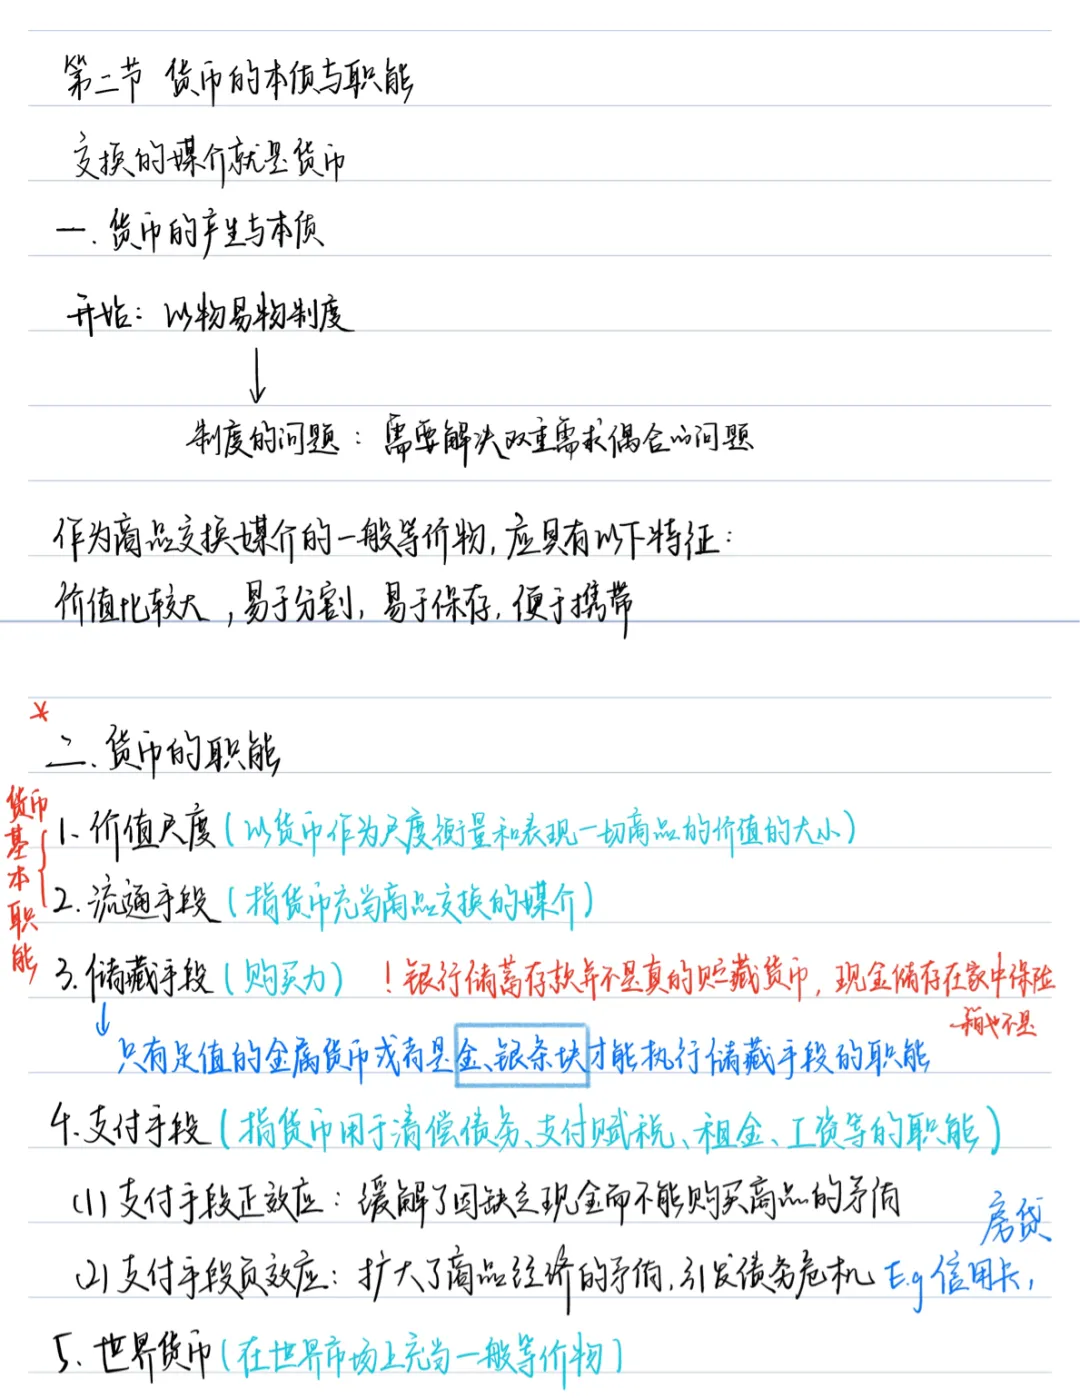 第二节 货币的本质与职能
交换的媒介就是货币
一.货币的产生与本质
开始：以物易物制度
↓
制度的问题：需要解决双重需求偶合的问题
作为商品交换媒介的一般等价物,应具有以下特征：
价值比较大,易于分割,易于保存,便于携带
*
二.货币的职能
货币基本职能
1、价值尺度(以货币作为尺度衡量和表现一切商品的价值的大小)
2.流通手段(指货币充当商品交换的媒介)
3.储藏手段(购买力) !银行储蓄存款并不是真的贮藏货币,现金储存在家中保险
箱也不是
↓
只有足值的金属货币或者是金、银条块才能执行储藏手段的职能
4.支付手段(指货币用于清偿债务、支付赋税、租金、工资等的职能)
(1)支付手段正效应：缓解了因缺乏现金而不能购买商品的矛盾
房贷
(2)支付手段负效应：扩大了商品经济的矛盾,引发债务危机 E.g 信用卡,
5.世界货币(在世界市场上充当一般等价物)